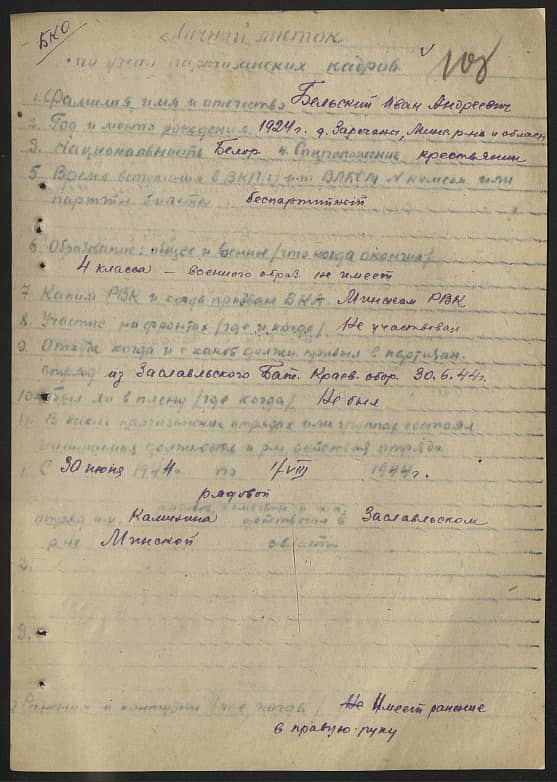 БКО
Личный листок
по учету партизанских кадров
108
1. Фамилия, имя и отчество Бельский Иван Андреевич
2. Год и место рождения 1924 г. д. Заречаны, Минск. р-на и област
3. Национальность Белор. 4. Соцположение крестьянин
5. Время вступления в ВКП(б) или ВЛКСМ № комсом. или
партий. билета. беспартийный
6. Образование: общее и военное /что когда окончил/
4 класса – военного образ. не имеет
7. Каким РВК и когда призван в КА. Минским РВК
8. Участие на фронтах /где и когда/ Не участвовал
9. Откуда когда и с какой должн. прибыл в партизан.
отряд из Заславльского Бат. Краев. обор. 30.6.44г.
10. Был ли в плену /где когда/ Не был
11. В каких партизанских отрядах или группах состоял
занимаемая должность и р-н действия отряда
1. С 30 июня 1944 по 1/VIII 1944 г.
рядовой
отряда им. Калинина действовал в Заславльском
р-не Минской области
2.
3.
Ранения и контузии /где, когда/ Не Имеет ранение
в правую руку